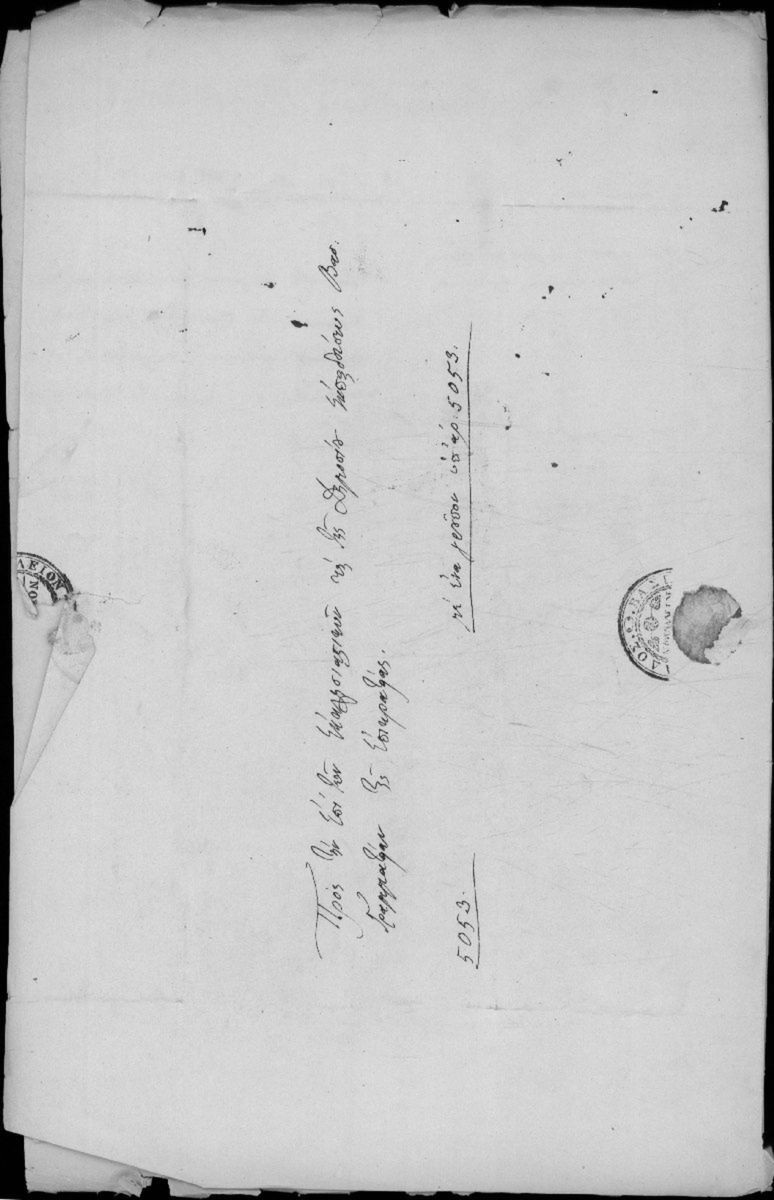 Πρὸς τὴν ἐπὶ τῶν Ἐκκλησιαστικῶν κ τῆς Δημοσίου Ἐκπαιδεύσεως Βασ.
Γραμματείαν τῆς Ἐπικρατείας.
5053.
ὑπ' ἀρ. 5053.
ΛΕΙΟΝ
ΟΝ